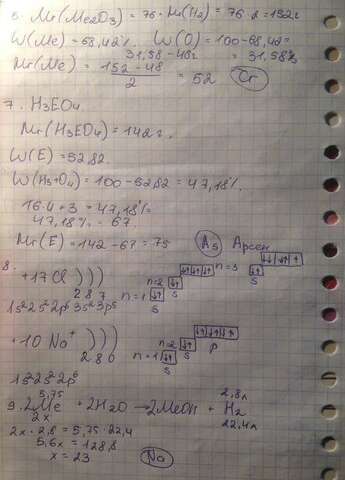 6. Mr(Me2O3) = 76 · Mr(H2) = 76 · 2 = 152г
W(Me) = 68,42%. W(O) = 100 - 68,42 =
31,58 - 48г = 31,58%
Mr(Me) = (152 - 48)/2 = 52 Cr
7. H3EO4
Mr(H3EO4) = 142г.
W(E) = 52,82.
W(H3+O4) = 100 - 52,82 = 47,18%.
16·4 + 3 = 47,18% =
47,18% - 67.
Mr(E) = 142 - 67 = 75 As Арсен
8. +17 Cl ) ) )
2 8 7
n=1 s n=2 s n=3 s
1s²2s²2p⁶3s²3p⁵
+10 Na⁺ ) ) )
2 8 0
n=1 s n=2 s p
1s²2s²2p⁶
5,75 2,8л
9. 2Me + 2H2O → 2MeOH + H2
2x 22,4л
2x · 2,8 = 5,75 · 22,4
5,6x = 128,8
x = 23 Na